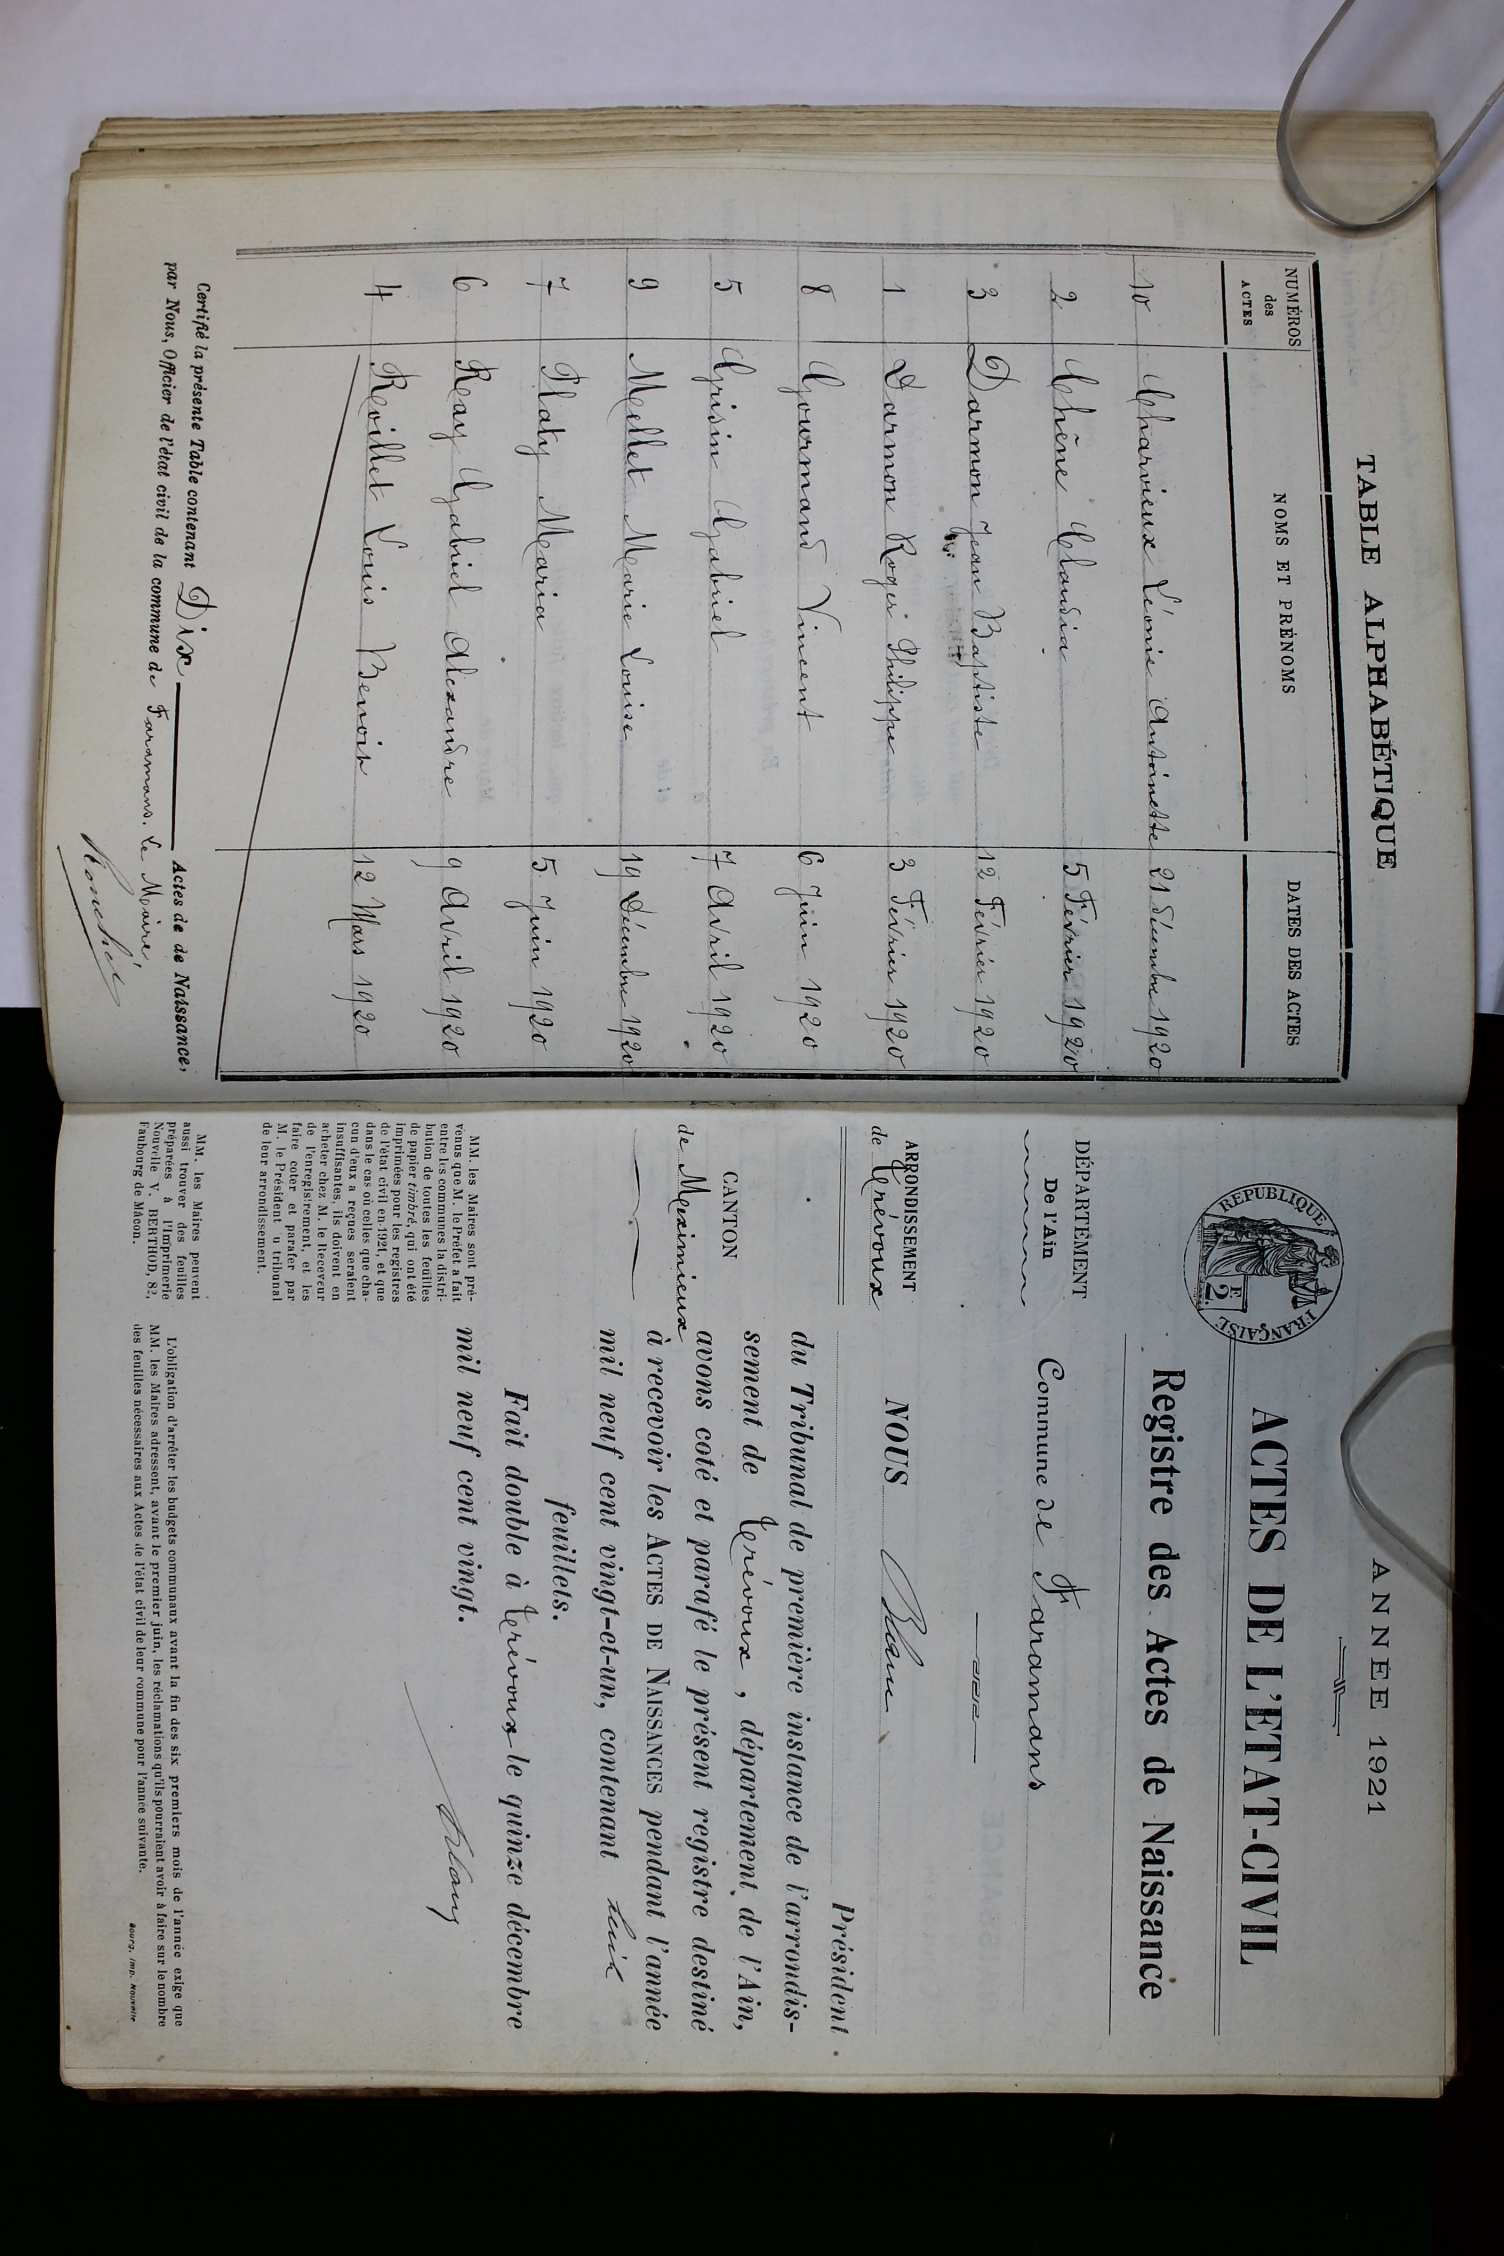 TABLE ALPHABÉTIQUE
NUMÉROS des ACTES
NOMS ET PRÉNOMS
DATES DES ACTES
10 Charvieux Léonie Antoinette 21 décembre 1920
2 Chêne Claudia 5 Février 1920
3 Darmon Jean Baptiste 12 Février 1920
1 Darmon Roger Philippe 3 Février 1920
8 Gourmand Vincent 6 Juin 1920
5 Grisin Gabriel 7 Avril 1920
9 Mellet Marie Louise 19 Décembre 1920
7 Platy Maria 5 Juin 1920
6 Rey Gabriel Alexandre 9 Avril 1920
4 Revillet Louis Benoit 12 Mars 1920
Certifié la présente Table contenant Dix Actes de de Naissance,
par Nous, Officier de l'état civil de la commune de Faramans. Le Maire,
ANNÉE 1921
ACTES DE L'ETAT-CIVIL
Registre des Actes de Naissance
REPUBLIQUE FRANÇAISE
2F
DÉPARTEMENT
De l'Ain
ARRONDISSEMENT
de Trévoux
CANTON
de Meximieux
MM. les Maires sont pré-
venus que M. le Préfet a fait
entre les communes la distri-
bution de toutes les feuilles
de papier timbré, qui ont été
imprimées pour les registres
de l'état civil en 1921, et que
dans le cas où celles que cha-
cun d'eux a reçues seraient
insuffisantes, ils doivent en
acheter chez M. le Receveur
de l'enregistrement, et les
faire coter et parafer par
M. le Président u tribunal
de leur arrondissement.
MM. les Maires peuvent
aussi trouver des feuilles
préparées à l'Imprimerie
Nouvelle V. BERTHOD, 82,
Faubourg de Mâcon.
Commune de Faramans
NOUS
Président
du Tribunal de première instance de l'arrondis-
sement de Trévoux, département de l'Ain,
avons coté et parafé le présent registre destiné
à recevoir les ACTES DE NAISSANCES pendant l'année
mil neuf cent vingt-et-un, contenant huit
feuillets.
Fait double à Trévoux le quinze décembre
mil neuf cent vingt.
L'obligation d'arrêter les budgets communaux avant la fin des six premiers mois de l'année exige que
MM. les Maires adressent, avant le premier juin, les réclamations qu'ils pourraient avoir à faire sur le nombre
des feuilles nécessaires aux Actes de l'état civil de leur commune pour l'année suivante.
Bourg, Imp. Nouvelle